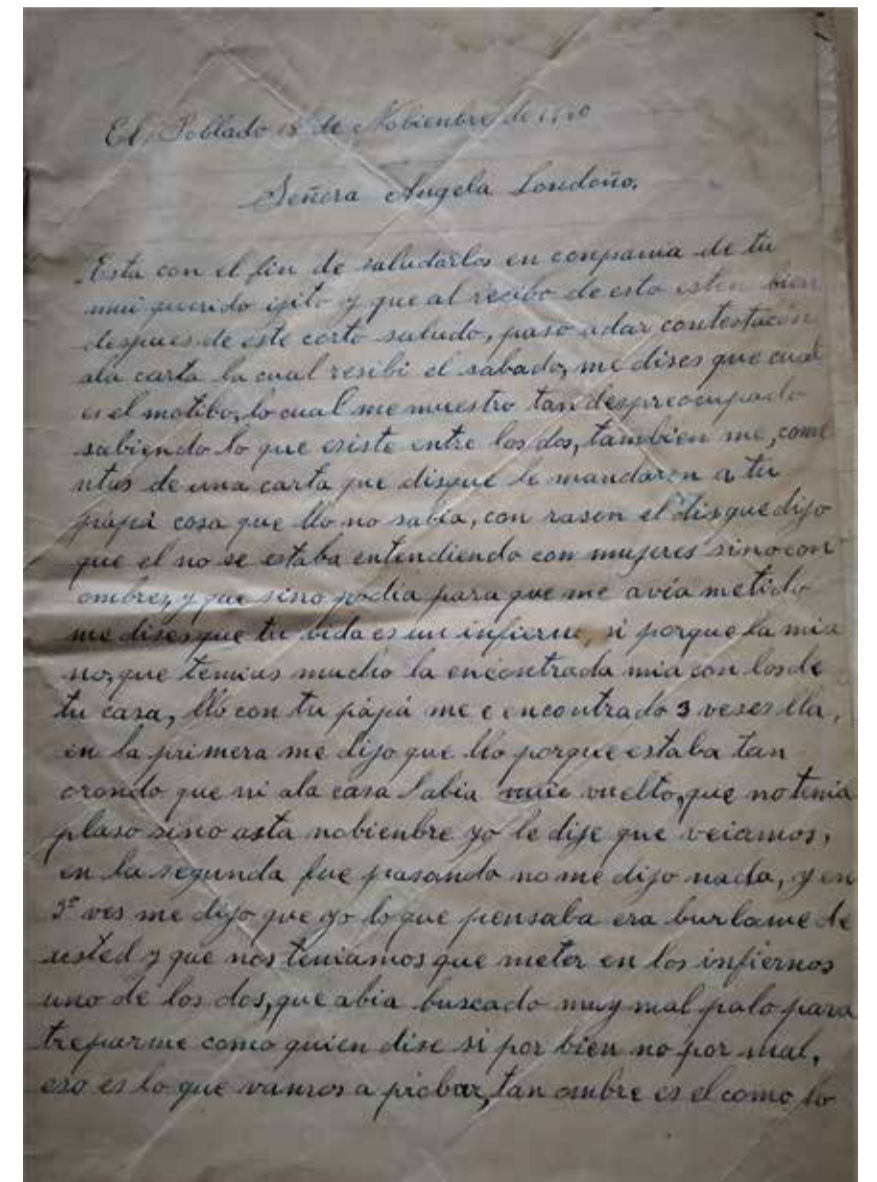 El Poblado 18 de Nobienbre de
Señora Angela Londoño.
Esta con el fin de saludarlos en conpania de tu
mui querido ijito y que al recibo de esta esten bien
despues de este corto saludo, paso adar contestacón
ala carta la cual resibi el sabado, me dises que cual
es el motibo, lo cual me muestro tan despreocupado
sabiendo lo que esiste entre los dos, tambien me, come
ntas de una carta que disque le mandaron a tu
pápá cosa que llo no sabia, con rason el disque dijo
que el no se estaba entendiendo con mujeres sino con
ombres, y que sino podia para que me avia metido
me dises que tu bida es un infierno, si porque la mia
no, que temias mucho la encontrada mia con los de
tu casa, llo con tu pápá me e encontrado 3 veses lla,
en la primera me dijo que llo porque estaba tan
orondo que ni ala casa abia vuelto, que no tenia
plaso sino asta nobienbre yo le dije que veiamos,
en la segunda fue pasando no me dijo nada, y en
3ª ves me dijo que yo lo que pensaba era burlame de
usted y que nos teniamos que meter en los infiernos
uno de los dos, que abia buscado muy mal palo para
treparme como quien dise si por bien no por mal,
eso es lo que vamos a probar, tan ombre es el como lo